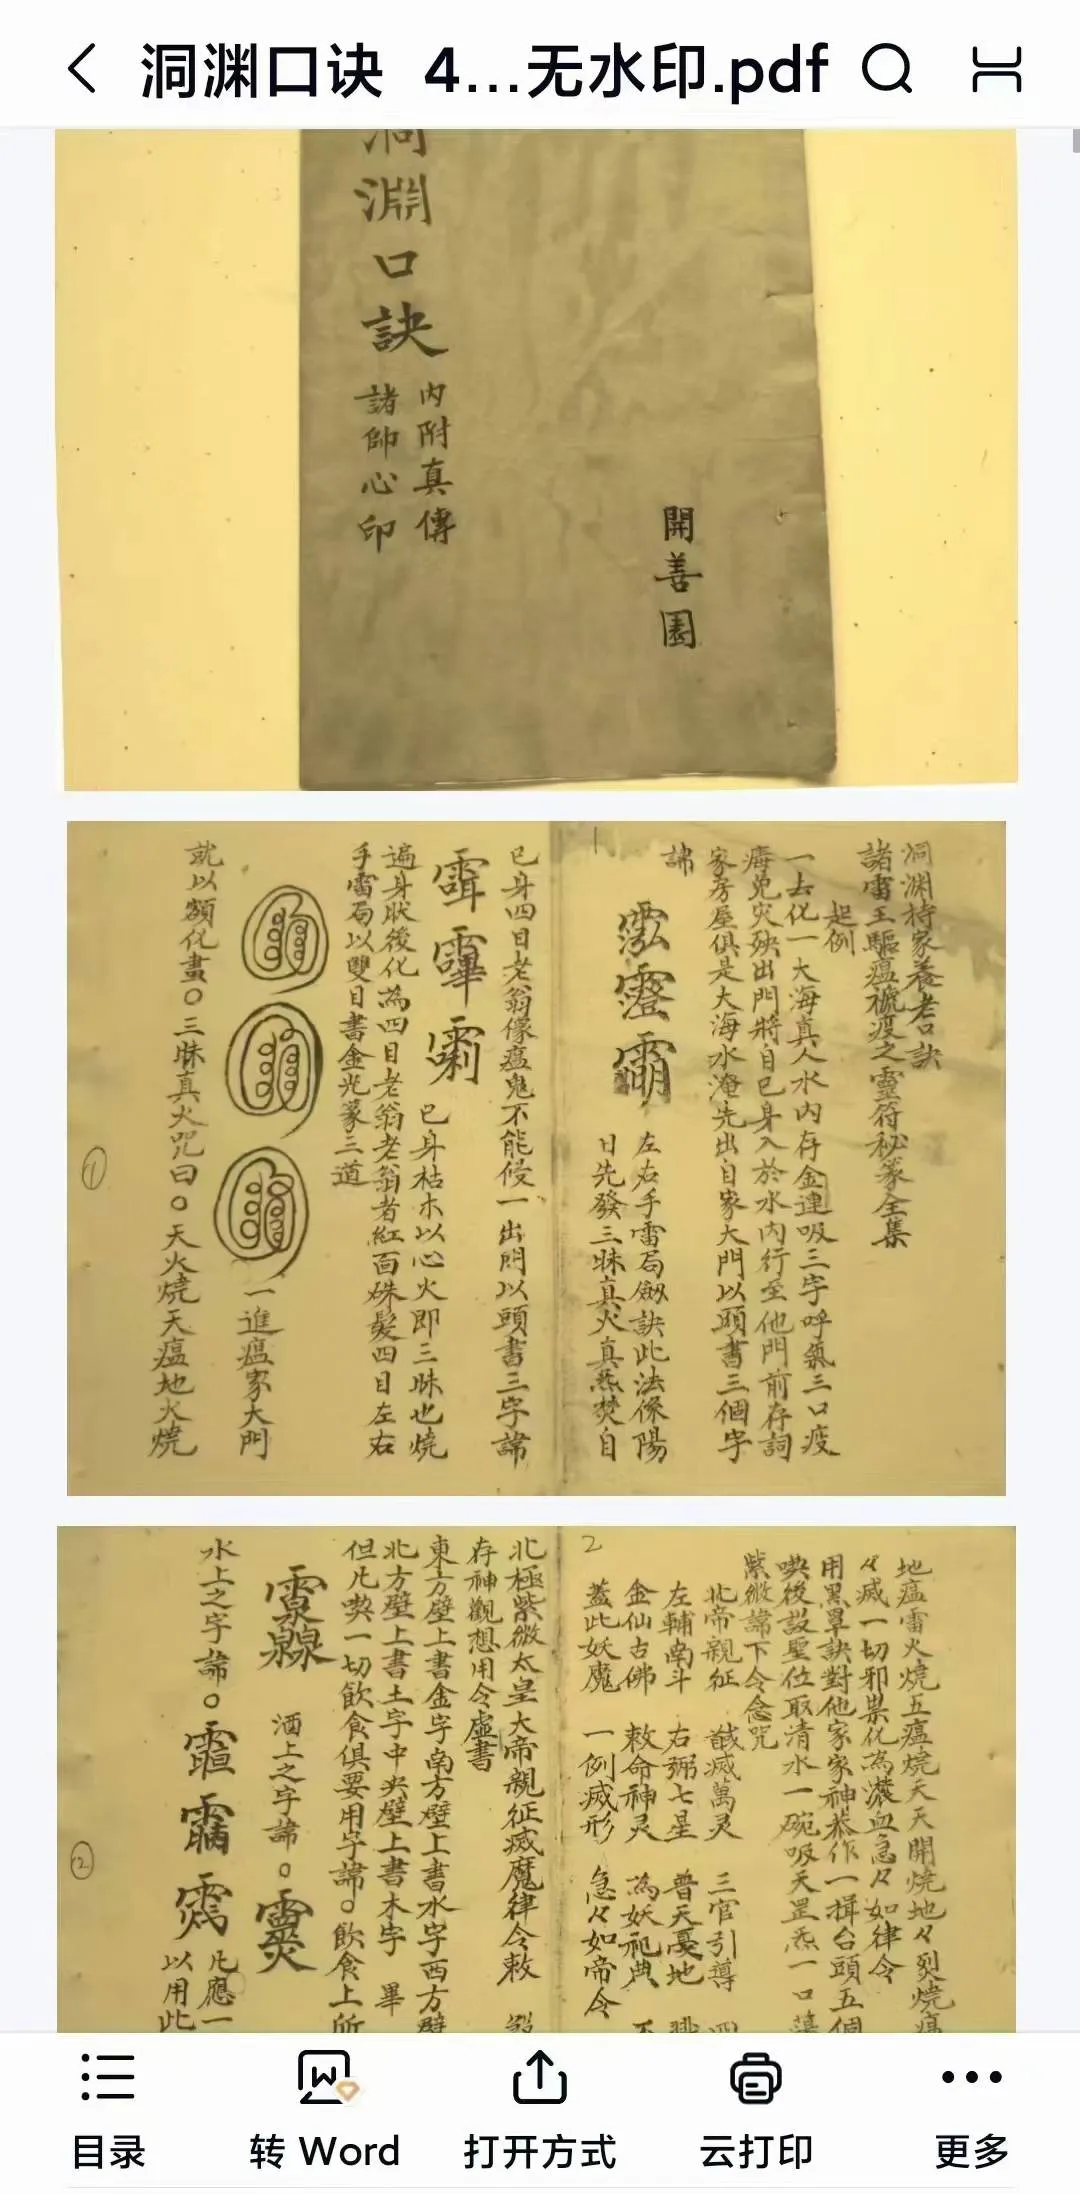 洞渊口诀 4...无水印.pdf
洞淵口訣
內附真傳
諸帥心印
開善園
洞渊持家養老口訣
諸雷王驅瘟襪疫之靈符秘篆全集
起例
一去化一大海真人水内存金連吸三字呼氣三口疫
瘑鬼灾殃出門將自己身入於水内行至他門前存詞
家房屋俱是大海水淹先出自家大門以頭書三個字
諱
左右手雷局劍訣此法係陽
日先發三昧真火真炁焚自
1
已身四目老翁像瘟鬼不能侵一出門以頭書三字諱
已身枯木以心火即三昧也燒
遍身狀後化為四目老翁老翁者紅面硃髮四目左右
手雷局以雙目書金光篆三道
一進瘟家大門
就以額化畫〇三昧真火咒曰〇天火燒天瘟地火燒
①
地瘟雷火燒五瘟燒天天開燒地々烈燒瘟
々滅一切邪祟化為濃血急々如律令
用黑罩訣對他家家神恭作一揖台頭五個
噢後設聖位取清水一碗吸天罡炁一口
紫微諱下令念咒
北帝親征 馘滅萬灵 三官引導
左輔南斗 右弼七星 普天憂地
金仙古佛 敕命神灵 為妖祀典
蓋此妖魔 一例滅形 急々如帝令
2
北極紫微太皇大帝親征滅魔律令敕
存神觀想用令虛書
東方壁上書金字南方壁上書水字西方壁
北方壁上書土字中央壁上書木字 畢
但凡喫一切飲食俱要用字諱〇飲食上所
酒上之字諱〇
水上之字諱〇
凡應一
以用此
②
目录
转 Word
打开方式
云打印
更多